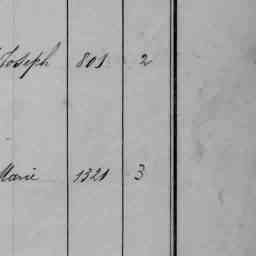 Joseph 801 2
Marie 1321 3